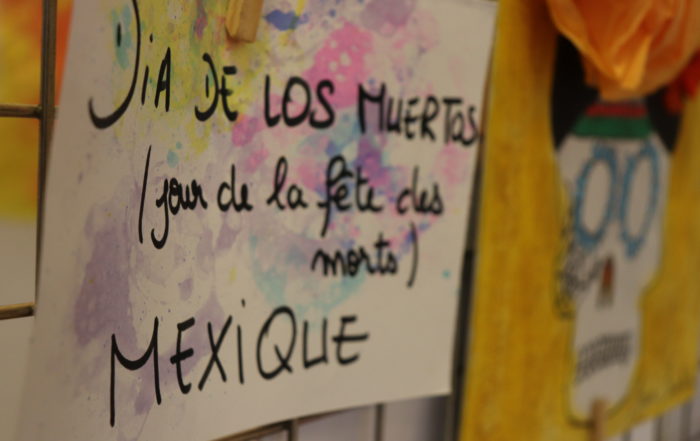 DiA DE LOS MUERTOS
(jour de la fête des
morts)
MEXiQUE